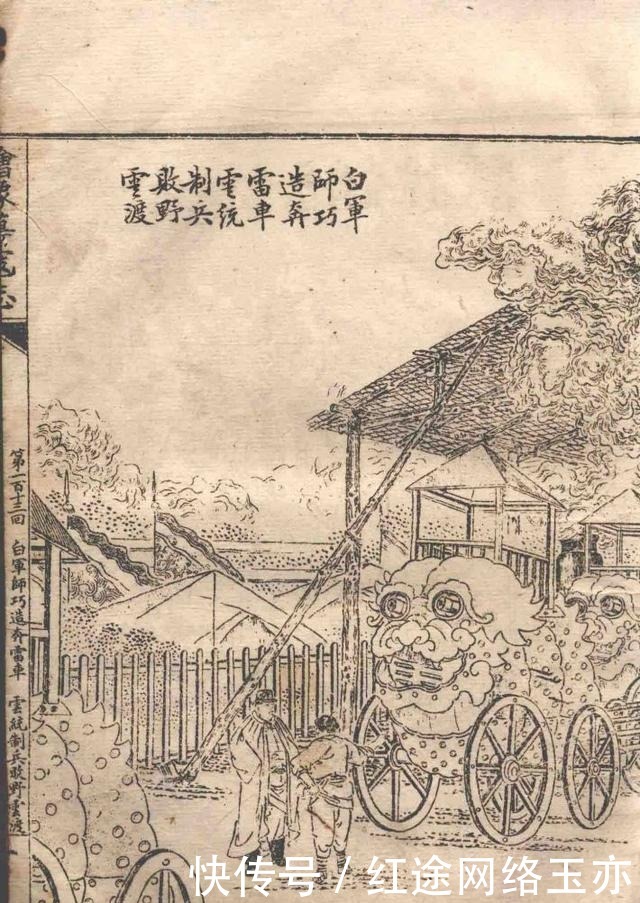 白軍
師巧
造奔
雷車
雲統
制兵
敗野
雲渡
繪像蕩寇志
第一百十三回 白軍師巧造奔雷車 雲統制兵敗野雲渡 一
快传号 / 红途网络玉亦